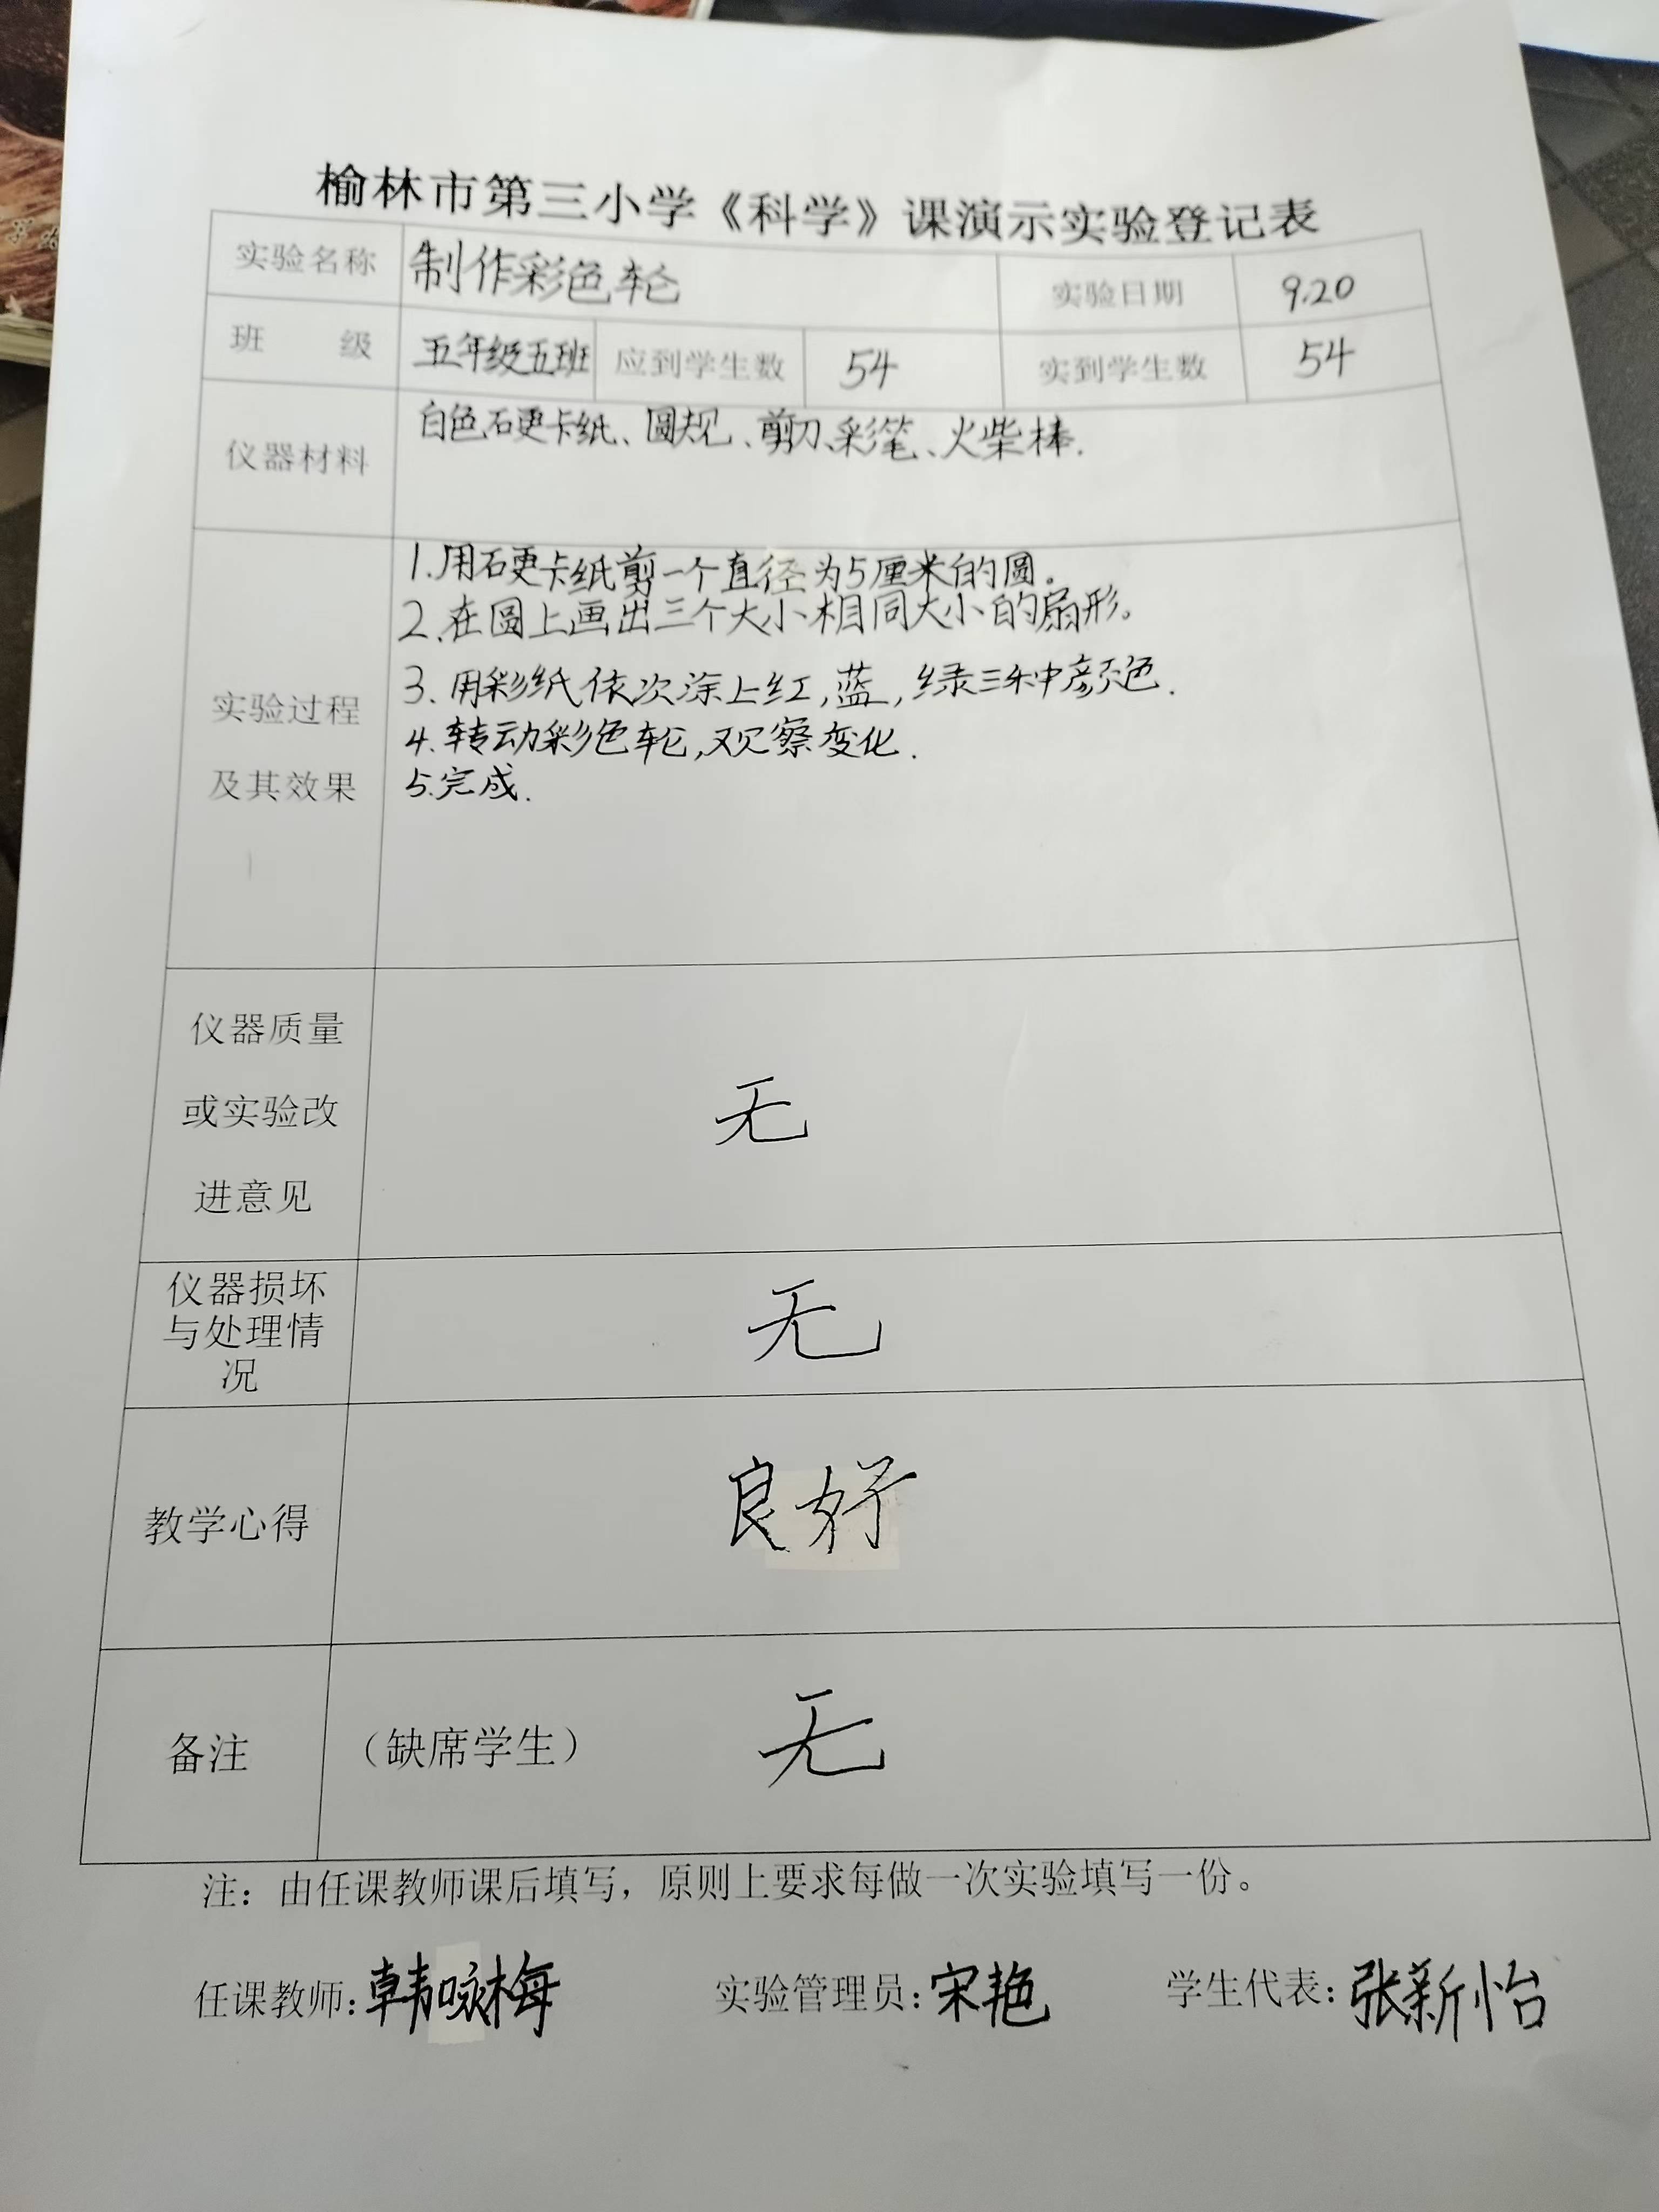 榆林市第三小学《科学》课演示实验登记表
实验名称 制作彩色轮 实验日期 9.20
班 级 五年级五班 应到学生数 54 实到学生数 54
仪器材料 白色硬卡纸、圆规、剪刀、彩笔、火柴棒.
1.用硬卡纸剪一个直径为5厘米的圆。
2.在圆上画出三个大小相同大小的扇形。
3.用彩纸依次涂上红,蓝,绿三种颜色.
实验过程
4.转动彩色轮,观察变化.
及其效果
5.完成.
仪器质量
或实验改
进意见
无
仪器损坏
与处理情
况
无
教学心得 良好
备注 (缺席学生) 无
注：由任课教师课后填写，原则上要求每做一次实验填写一份。
任课教师:韩咏梅 实验管理员:宋艳 学生代表:张新怡